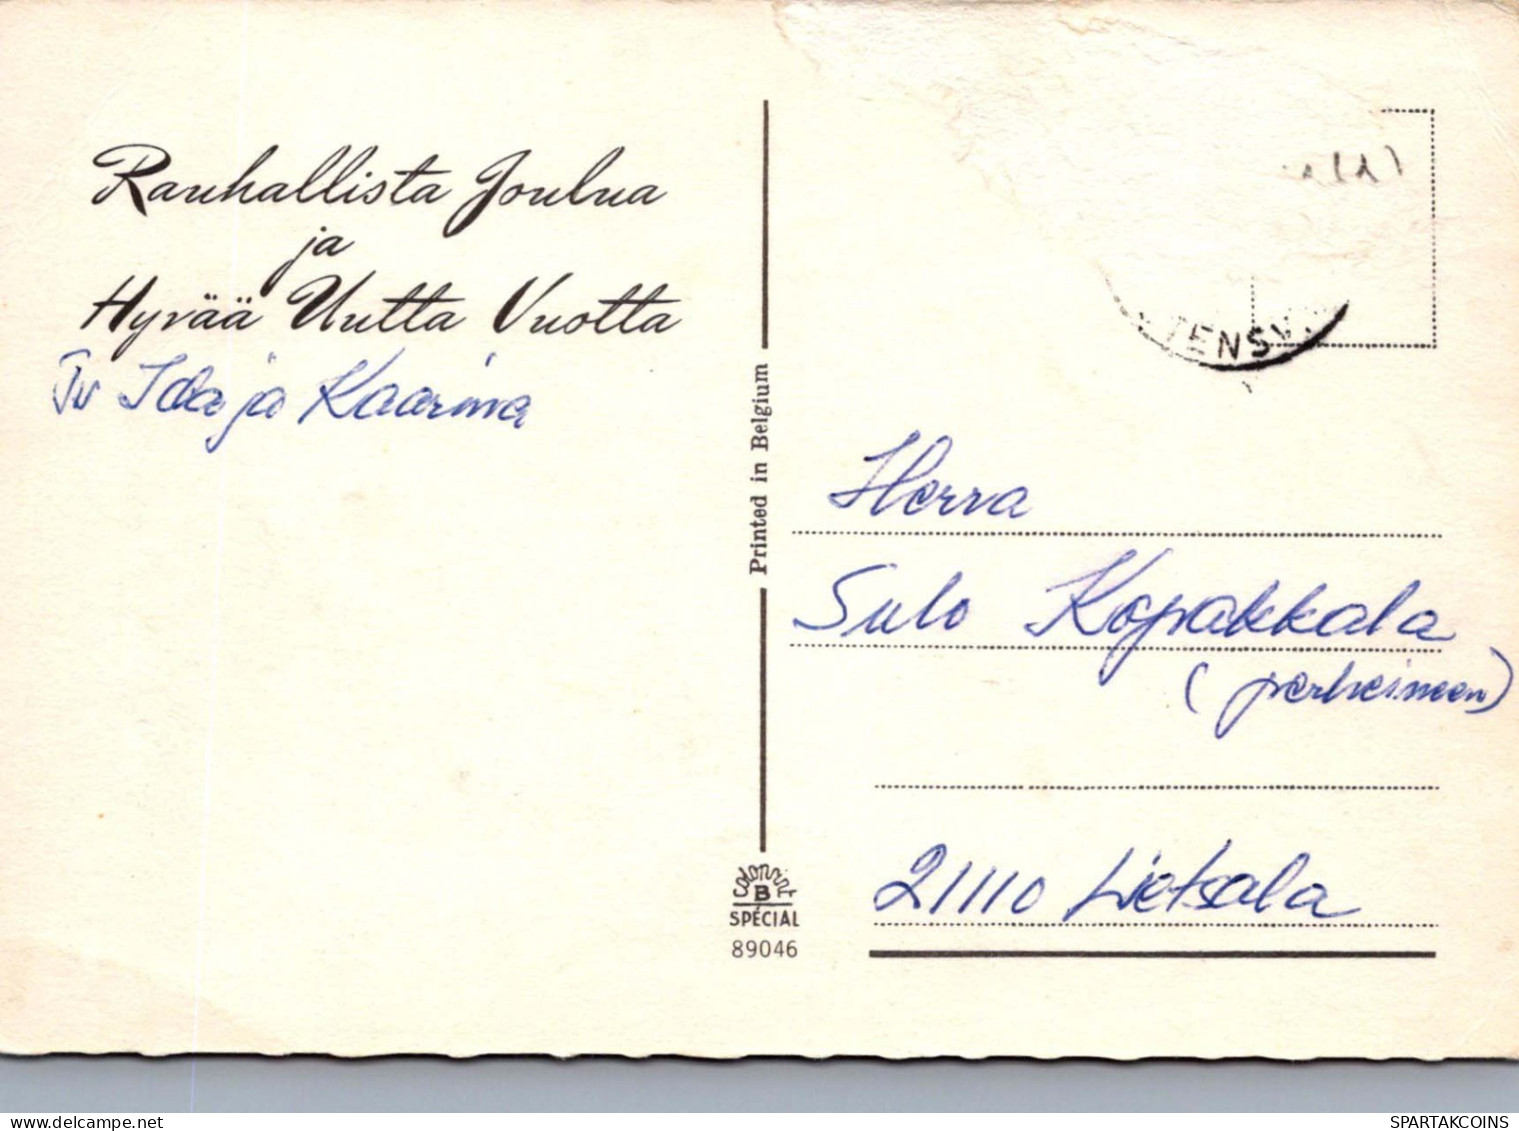 Rauhallista Joulua
ja
Hyvää Uutta Vuotta
Tv Ida ja Kaarina
Printed in Belgium
colorprint
B
SPÉCIAL
89046
TENSV
Herra
Sulo Kopakkala
(perheineen)
21110 Lietsala
SPARTAKCOINS